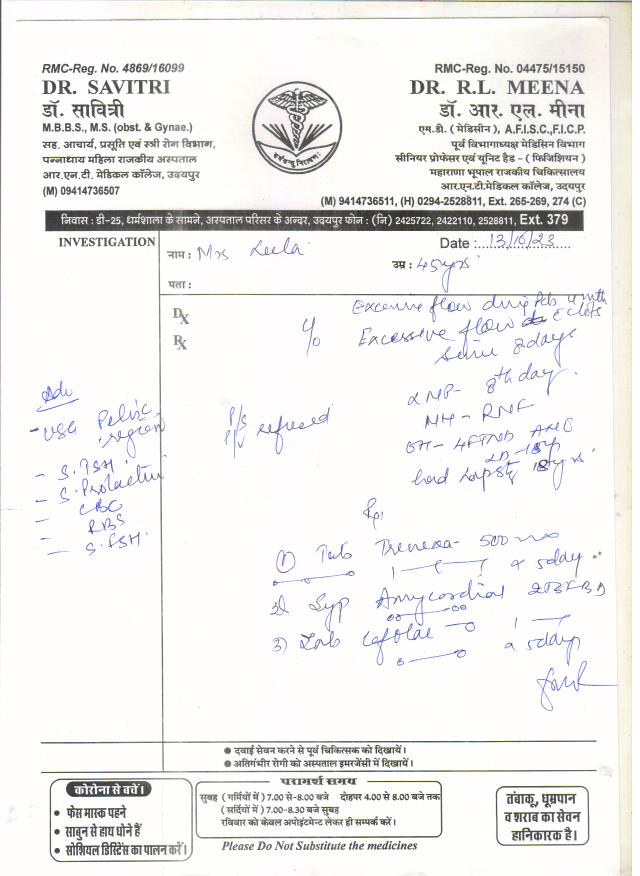 RMC-Reg. No. 4869/16099
DR. SAVITRI
डॉ. सावित्री
M.B.B.S., M.S. (obst. & Gynae.)
सह. आचार्य, प्रसूति एवं स्त्री रोग विभाग,
पन्नाधाय महिला राजकीय अस्पताल
आर.एन.टी. मेडिकल कॉलेज, उदयपुर
(M) 09414736507
RMC-Reg. No. 04475/15150
DR. R.L. MEENA
डॉ. आर. एल. मीना
एम.डी. ( मेडिसीन ), A.F.I.S.C.,F.I.C.P.
पूर्व विभागाध्यक्ष मेडिसिन विभाग
सीनियर प्रोफेसर एवं यूनिट हैड - ( फिजिशियन )
महाराणा भूपाल राजकीय चिकित्सालय
आर.एन.टी.मेडिकल कॉलेज, उदयपुर
(M) 9414736511, (H) 0294-2528811, Ext. 265-269, 274 (C)
निवास : डी-25, धर्मशाला के सामने, अस्पताल परिसर के अन्दर, उदयपुर फोन : (नि) 2425722, 2422110, 2528811, Ext. 379
INVESTIGATION
नाम : Mrs Leela
Date : 13/10/23
उम्र : 45yrs
पता :
Dx
Rx
Excessive flow
c/o Excessive flow c clots
since 8 days
LMP- 8th day.
MH- RNF
P/S
P/V refused
Adv
- USG Pelvic
region
- S.TSH
- S.Prolactin
- CBC
- RBS
- S.FSH.
Rp
1) Tab Trenexa- 500
x 5day
2) Syp Amycordial 2TSF BD
3) Tab
x 5day
● दवाई सेवन करने से पूर्व चिकित्सक को दिखायें।
● अतिगंभीर रोगी को अस्पताल इमरजेंसी में दिखायें।
कोरोना से बचें।
● फेस मास्क पहने
● साबुन से हाथ धोने हैं
● सोशियल डिस्टेंस का पालन करें।
परामर्श समय
सुबह ( गर्मियों में ) 7.00 से-8.00 बजे दोहपर 4.00 से 8.00 बजे तक
( सर्दियों में ) 7.00-8.30 बजे सुबह
रविवार को केवल अपोइंटमेंट लेकर ही सम्पर्क करें।
Please Do Not Substitute the medicines
तंबाकू, धूम्रपान
व शराब का सेवन
हानिकारक है।